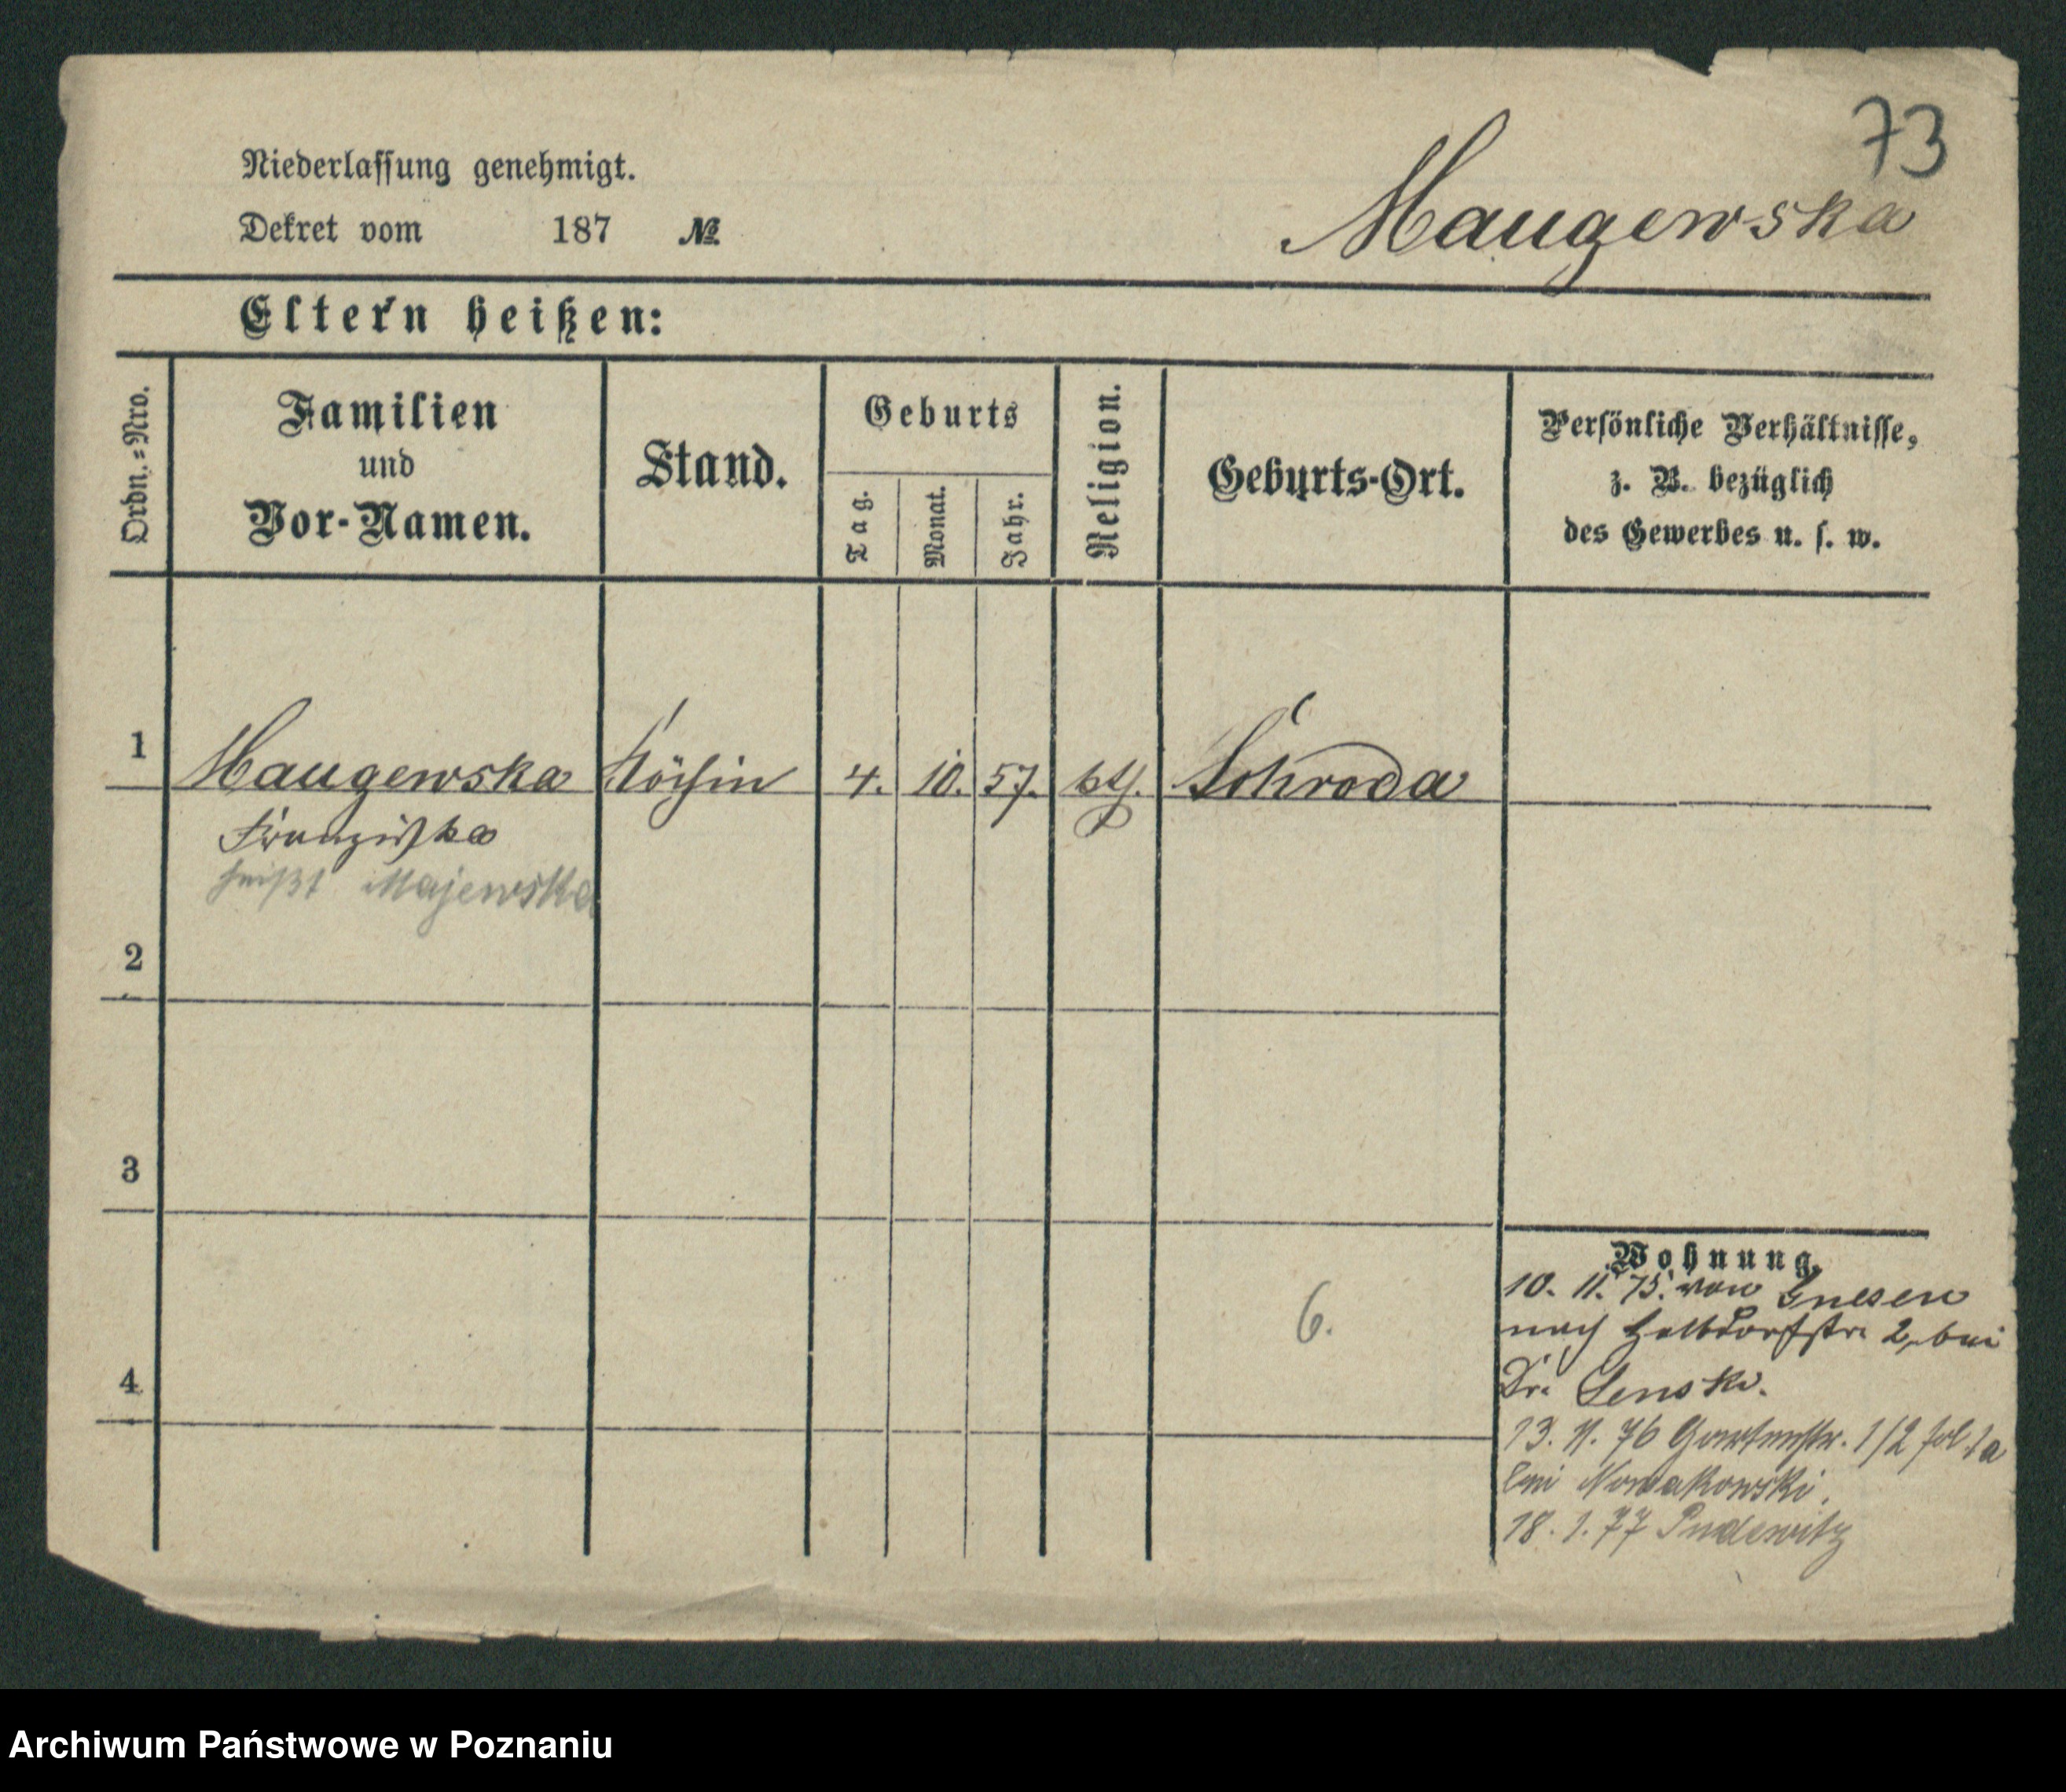 73
Niederlassung genehmigt.
Maugewska
Dekret vom 187 №
Eltern heißen:
Ordn.=Nro.
Familien
und
Vor-Namen.
Stand.
Geburts
Tag.
Monat.
Jahr.
Religion.
Geburts-Ort.
Persönliche Verhältnisse,
z. B. bezüglich
des Gewerbes u. s. w.
1 Maugewska Köchin 4. 10. 57. kth. Schroda
Franziska
heißt Majewska
2
3
Wohnung.
10. 11. 75. von Gnesen
nach Halbdorfstr. 2, bei
Dr. Senski.
6.
4
13. 11. 76 Gartenstr. 1/2
bei Nowakowski.
18. 1. 77 Pudewitz
Archiwum Państwowe w Poznaniu